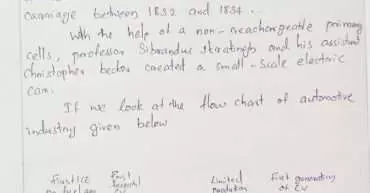 carriage between 1832 and 1834.
With the help of a non-reachargeable primary
cells, professor Sibrandus stratingh and his assistant
christopher becker created a small-scale electric
car.
If we look at the flow chart of automotive
industry given below
First ICE
First
Limited
First generation
of EV